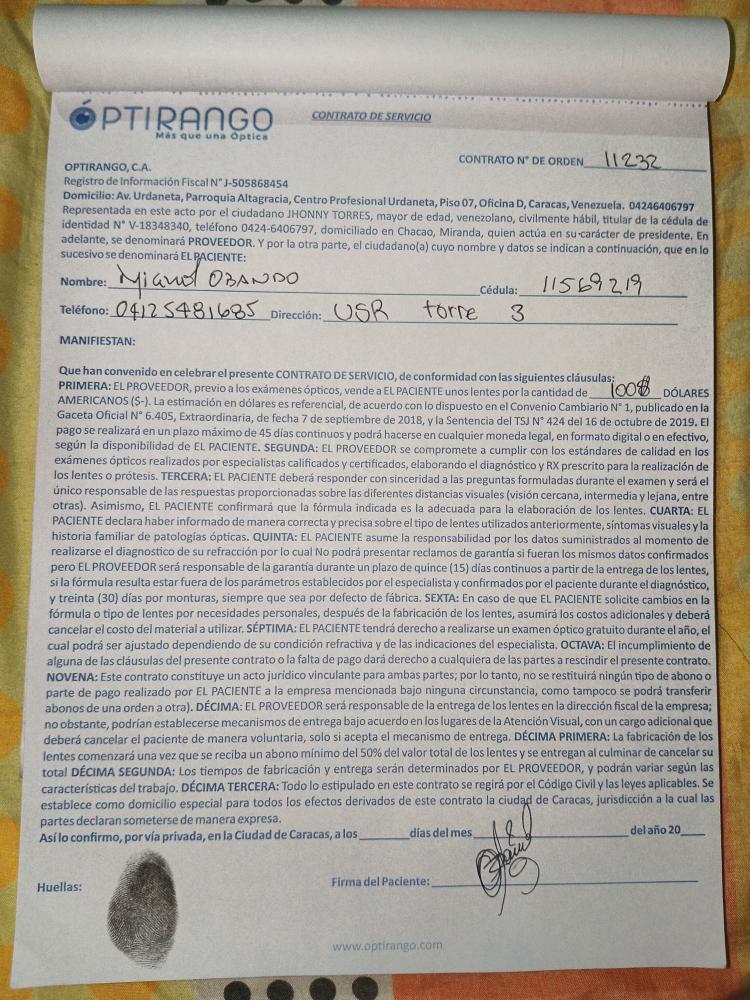 ÓPTIRANGO
Más que una Óptica
CONTRATO DE SERVICIO
CONTRATO N° DE ORDEN 11232
OPTIRANGO, C.A.
Registro de Información Fiscal N° J-505868454
Domicilio: Av. Urdaneta, Parroquia Altagracia, Centro Profesional Urdaneta, Piso 07, Oficina D, Caracas, Venezuela. 04246406797
Representada en este acto por el ciudadano JHONNY TORRES, mayor de edad, venezolano, civilmente hábil, titular de la cédula de
identidad N° V-18348340, teléfono 0424-6406797, domiciliado en Chacao, Miranda, quien actúa en su-carácter de presidente. En
adelante, se denominará PROVEEDOR. Y por la otra parte, el ciudadano(a) cuyo nombre y datos se indican a continuación, que en lo
sucesivo se denominará EL PACIENTE:
Nombre: Miguel OBANDO Cédula: 11569219
Teléfono: 04125481685 Dirección: USR torre 3
MANIFIESTAN:
Que han convenido en celebrar el presente CONTRATO DE SERVICIO, de conformidad con las siguientes cláusulas:
PRIMERA: EL PROVEEDOR, previo a los exámenes ópticos, vende a EL PACIENTE unos lentes por la cantidad de 100$ DÓLARES
AMERICANOS ($-). La estimación en dólares es referencial, de acuerdo con lo dispuesto en el Convenio Cambiario N° 1, publicado en la
Gaceta Oficial N° 6.405, Extraordinaria, de fecha 7 de septiembre de 2018, y la Sentencia del TSJ N° 424 del 16 de octubre de 2019. El
pago se realizará en un plazo máximo de 45 días continuos y podrá hacerse en cualquier moneda legal, en formato digital o en efectivo,
según la disponibilidad de EL PACIENTE. SEGUNDA: EL PROVEEDOR se compromete a cumplir con los estándares de calidad en los
exámenes ópticos realizados por especialistas calificados y certificados, elaborando el diagnóstico y RX prescrito para la realización de
los lentes o prótesis. TERCERA: EL PACIENTE deberá responder con sinceridad a las preguntas formuladas durante el examen y será el
único responsable de las respuestas proporcionadas sobre las diferentes distancias visuales (visión cercana, intermedia y lejana, entre
otras). Asimismo, EL PACIENTE confirmará que la fórmula indicada es la adecuada para la elaboración de los lentes. CUARTA: EL
PACIENTE declara haber informado de manera correcta y precisa sobre el tipo de lentes utilizados anteriormente, síntomas visuales y la
historia familiar de patologías ópticas. QUINTA: EL PACIENTE asume la responsabilidad por los datos suministrados al momento de
realizarse el diagnostico de su refracción por lo cual No podrá presentar reclamos de garantía si fueran los mismos datos confirmados
pero EL PROVEEDOR será responsable de la garantía durante un plazo de quince (15) días continuos a partir de la entrega de los lentes,
si la fórmula resulta estar fuera de los parámetros establecidos por el especialista y confirmados por el paciente durante el diagnóstico,
y treinta (30) días por monturas, siempre que sea por defecto de fábrica. SEXTA: En caso de que EL PACIENTE solicite cambios en la
fórmula o tipo de lentes por necesidades personales, después de la fabricación de los lentes, asumirá los costos adicionales y deberá
cancelar el costo del material a utilizar. SÉPTIMA: EL PACIENTE tendrá derecho a realizarse un examen óptico gratuito durante el año, el
cual podrá ser ajustado dependiendo de su condición refractiva y de las indicaciones del especialista. OCTAVA: El incumplimiento de
alguna de las cláusulas del presente contrato o la falta de pago dará derecho a cualquiera de las partes a rescindir el presente contrato.
NOVENA: Este contrato constituye un acto jurídico vinculante para ambas partes; por lo tanto, no se restituirá ningún tipo de abono o
parte de pago realizado por EL PACIENTE a la empresa mencionada bajo ninguna circunstancia, como tampoco se podrá transferir
abonos de una orden a otra). DÉCIMA: EL PROVEEDOR será responsable de la entrega de los lentes en la dirección fiscal de la empresa;
no obstante, podrían establecerse mecanismos de entrega bajo acuerdo en los lugares de la Atención Visual, con un cargo adicional que
deberá cancelar el paciente de manera voluntaria, solo si acepta el mecanismo de entrega. DÉCIMA PRIMERA: La fabricación de los
lentes comenzará una vez que se reciba un abono mínimo del 50% del valor total de los lentes y se entregan al culminar de cancelar su
total DÉCIMA SEGUNDA: Los tiempos de fabricación y entrega serán determinados por EL PROVEEDOR, y podrán variar según las
características del trabajo. DÉCIMA TERCERA: Todo lo estipulado en este contrato se regirá por el Código Civil y las leyes aplicables. Se
establece como domicilio especial para todos los efectos derivados de este contrato la ciudad de Caracas, jurisdicción a la cual las
partes declaran someterse de manera expresa.
Así lo confirmo, por vía privada, en la Ciudad de Caracas, a los ______ días del mes ______ del año 20____
Huellas:
Firma del Paciente:
www.optirango.com